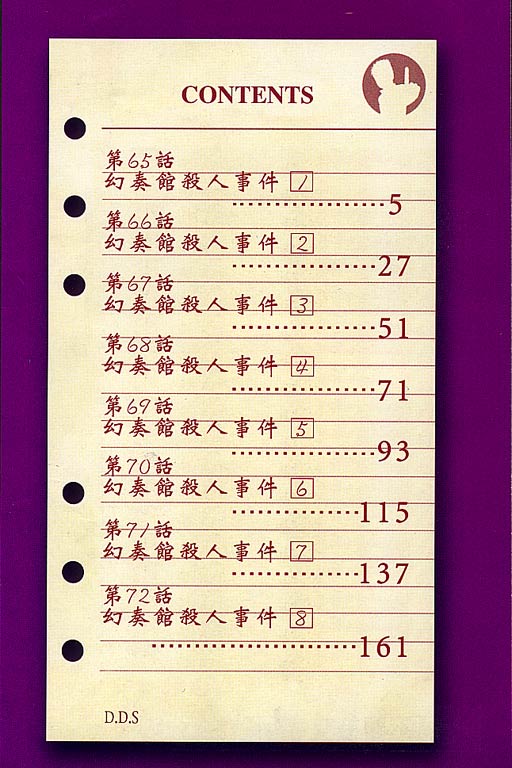 CONTENTS
第65話
幻奏館殺人事件 1
5
第66話
幻奏館殺人事件 2
27
第67話
幻奏館殺人事件 3
51
第68話
幻奏館殺人事件 4
71
第69話
幻奏館殺人事件 5
93
第70話
幻奏館殺人事件 6
115
第71話
幻奏館殺人事件 7
137
第72話
幻奏館殺人事件 8
161
D.D.S